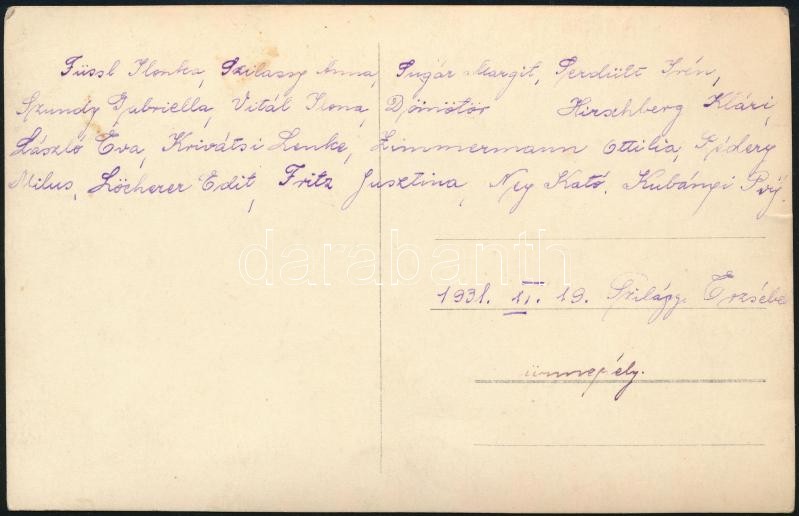 Füssl Ilonka, Szilassy Anna, Sugár Margit, Perdült Irén,
Szundy Gabriella, Vitál Ilona, Dömötör Hirschberg Klári,
László Éva, Krivátsi Lenke, Zimmermann Ottilia,
Milus, Löcherer Edit, Fritz Jusztina, Ney Kató, Kubányi
darabanth
1931. XI. 19. Szilágyi Erzsébet
ünnepély.